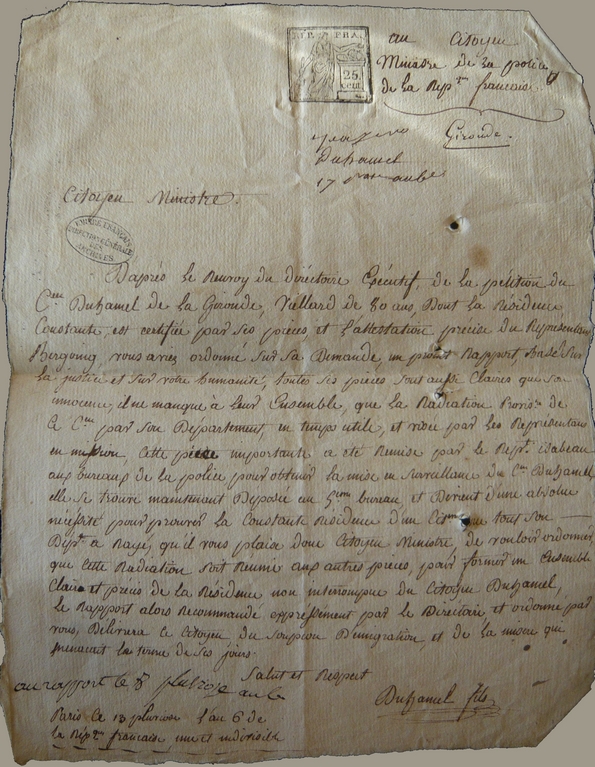 REP. FRA.
25
cent
au Citoyen
Ministre de la police
de la Rep.em francaise.
Gironde.
Duhamel
17
Citoyen Ministre.
EMPIRE FRANÇAIS
DIRECTION GÉNÉRALE
DES
ARCHIVES
D'après le Renvoy du directoire Exécutif, de la pétition du
C.en Duhamel de la Gironde, Vieillard de 80 ans, Dont la Résidence
Constante est certifiée par ses pièces, et l'attestation précise du Representant
Bergoing, vous aviez ordonné Sur Sa Demande, un prompt Rapport, Basé Sur
la justice et Sur votre humanité, toutes ses pièces sont aussi Claires que son
innocence, il ne manque à leur Ensemble, que la Radiation Provis.re de
ce C.en par son Departement, en temps utile, et visée par les Representans
en mission, Cette pièce importante a eté Remise par le Rep.t isabeau
aux bureaux de la police pour obtenir la mise en surveillance du C.en Duhamel
elle se trouve maintenant Deposée au 5.eme bureau et Devient d'une absolue
nécessité pour prouver la Constante Résidence d'un Cit.en que tout son
Dep.t a Rayé, qu'il vous plaise donc Citoyen Ministre, de vouloir ordonner
que Cette Radiation soit Reunie aux autres pièces, pour former un Ensemble
Clair et précis de la Résidence non interrompue du Citoyen Duhamel,
le Rapport alors Recommandé expressement par le Directoire et ordonné par
vous, Délivrera ce Citoyen du soupçon D'emigration, et de la misère qui
menacent la terme de ses jours.
Salut et Respect
au rapport le 8 pluviose
Duhamel fils
Paris ce 13 pluviose l'an 6 de
la Rép.em francaise une et indivisible